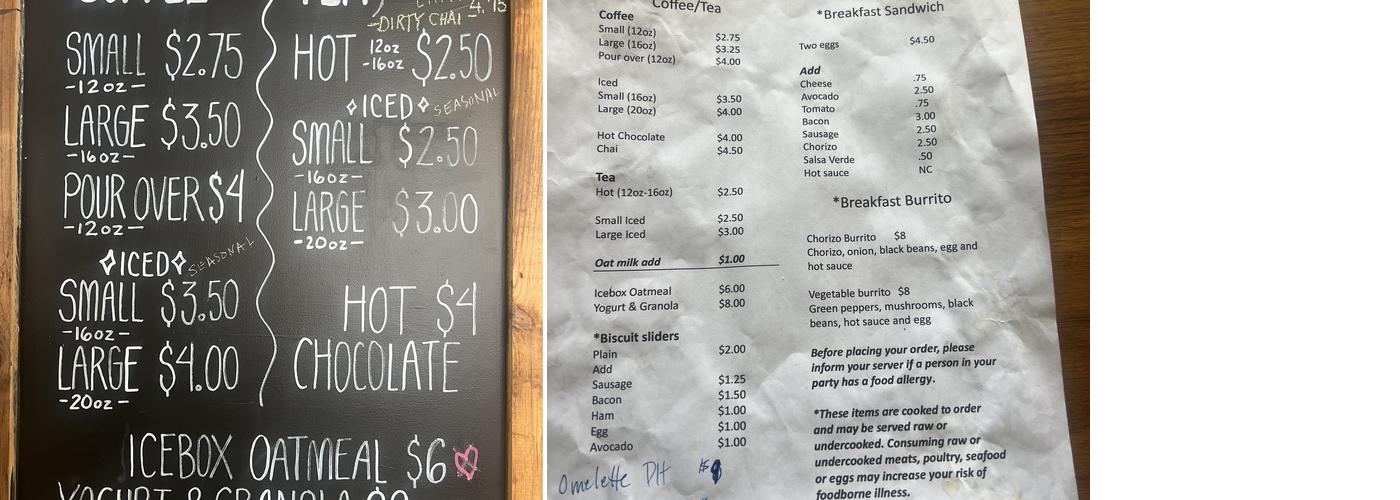 -DIRTY CHAI - 4.75
SMALL $2.75
-12oz-
LARGE $3.50
-16oz-
POUR OVER $4
-12oz-
ICED SEASONAL
SMALL $3.50
-16oz-
LARGE $4.00
-20oz-
HOT 12oz -16oz $2.50
ICED SEASONAL
SMALL $2.50
-16oz-
LARGE $3.00
-20oz-
HOT $4
CHOCOLATE
ICEBOX OATMEAL $6
YOGURT & GRANOLA
Coffee/Tea
Coffee
Small (12oz) $2.75
Large (16oz) $3.25
Pour over (12oz) $4.00
Iced
Small (16oz) $3.50
Large (20oz) $4.00
Hot Chocolate $4.00
Chai $4.50
Tea
Hot (12oz-16oz) $2.50
Small Iced $2.50
Large Iced $3.00
Oat milk add $1.00
Icebox Oatmeal $6.00
Yogurt & Granola $8.00
*Biscuit sliders
Plain $2.00
Add
Sausage $1.25
Bacon $1.50
Ham $1.00
Egg $1.00
Avocado $1.00
Omelette DH
*Breakfast Sandwich
Two eggs $4.50
Add
Cheese .75
Avocado 2.50
Tomato .75
Bacon 3.00
Sausage 2.50
Chorizo 2.50
Salsa Verde .50
Hot sauce NC
*Breakfast Burrito
Chorizo Burrito $8
Chorizo, onion, black beans, egg and
hot sauce
Vegetable burrito $8
Green peppers, mushrooms, black
beans, hot sauce and egg
Before placing your order, please
inform your server if a person in your
party has a food allergy.
*These items are cooked to order
and may be served raw or
undercooked. Consuming raw or
undercooked meats, poultry, seafood
or eggs may increase your risk of
foodborne illness.